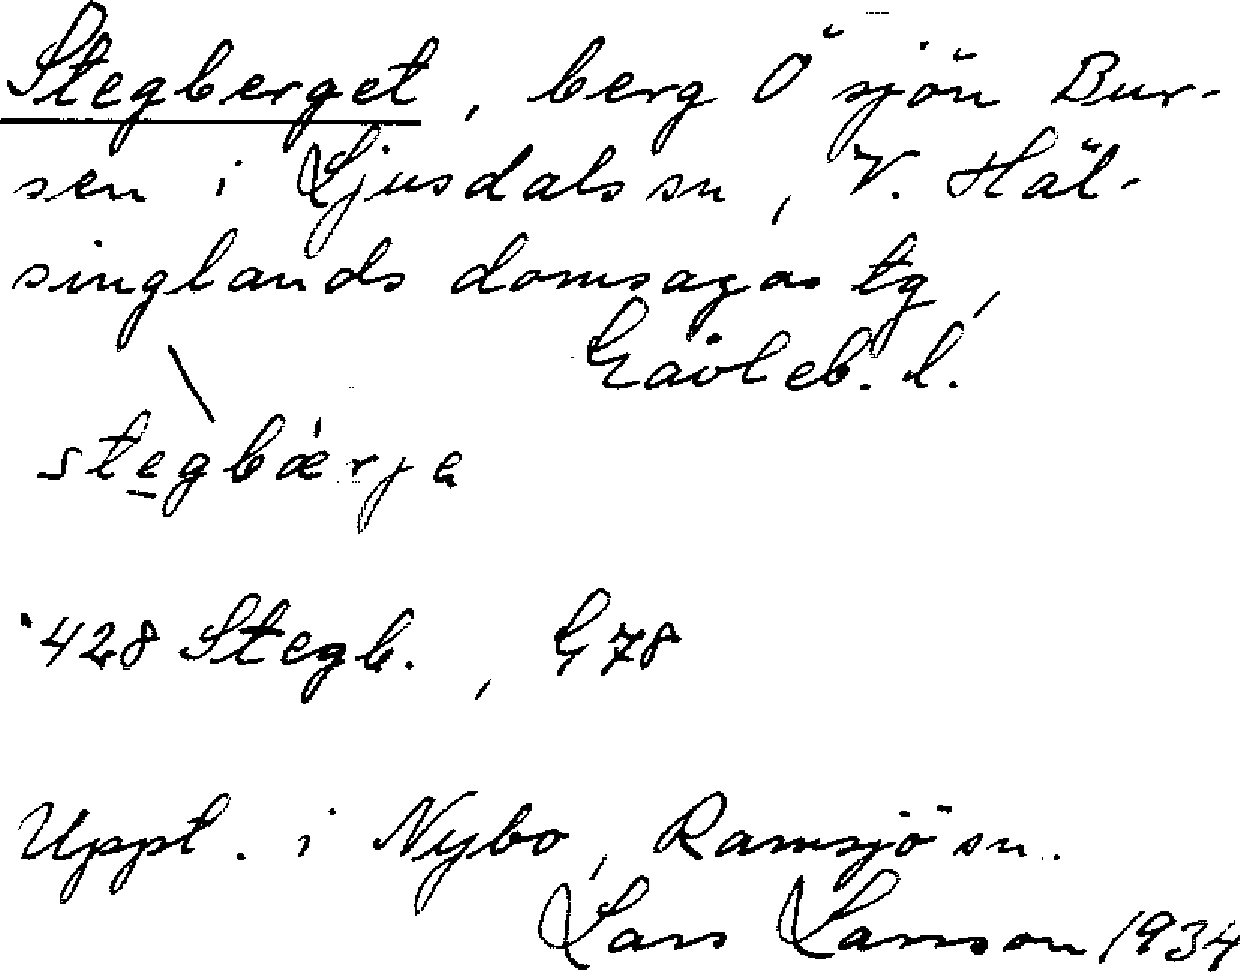 Stegberget, berg Ö sjön Bur-
sen i Ljusdals sn, V. Häl-
singlands domsagas tg,
Gävleb. l.
stegbærje
428 Stegb., G 78
Uppt. i Nybo, Ramsjö sn.
Lars Larsson 1934